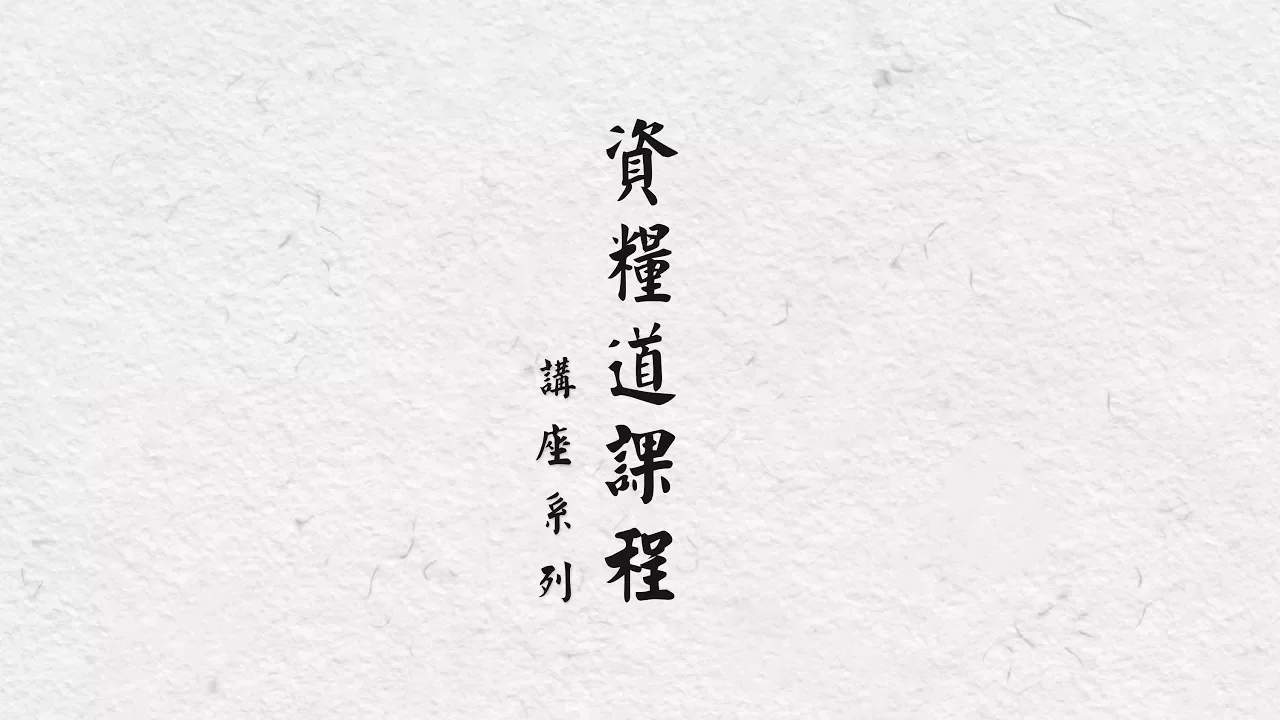 資糧道課程
講座系列